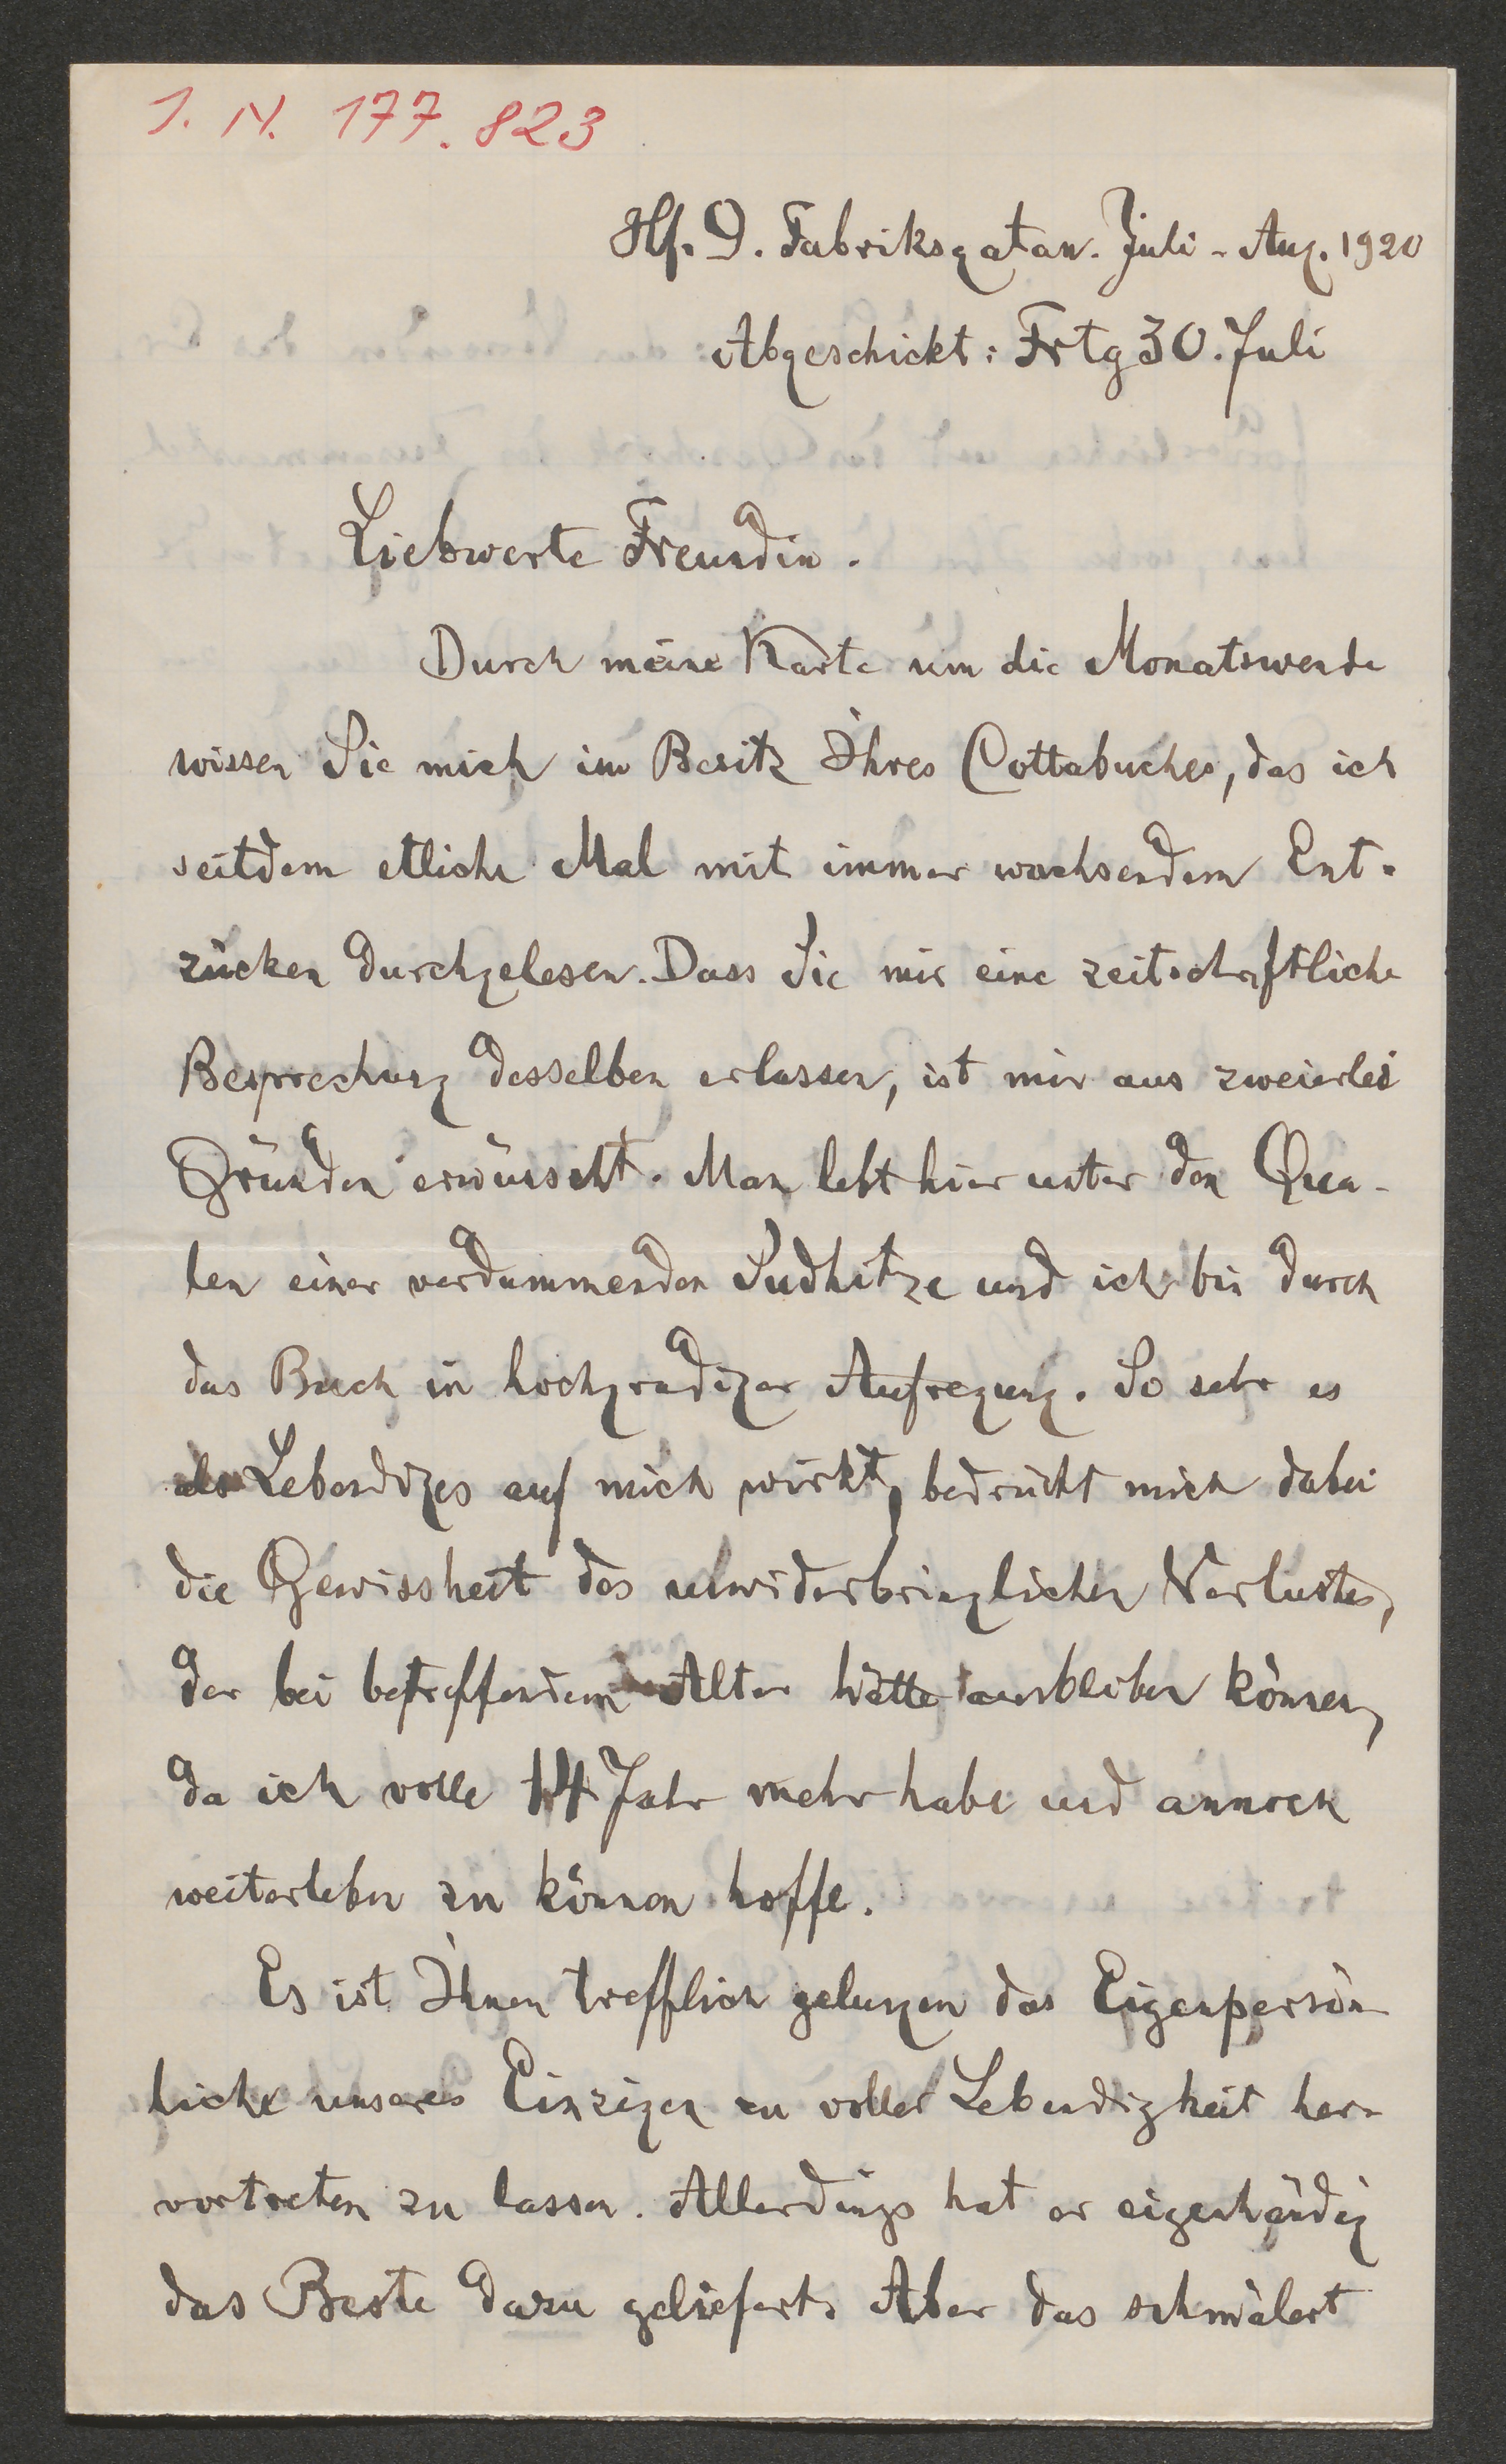 I. N. 177.823
Hf. 9. Fabriksgatan. Juli - Aug. 1920
Abgeschickt: Frtg 30. Juli
Liebwerte Freundin.
Durch meine Karte um die Monatswende
wissen Sie mich im Besitz Ihres Cottabuches, das ich
seitdem etliche Mal mit immer wachsendem Ent-
zücken durchgelesen. Dass Sie mir eine zeitschriftliche
Besprechung desselben erlassen, ist mir aus zweierlei
Gründen erwünscht. Man lebt hier unter den Qua-
len einer verdummenden Sudhitze und ich bin durch
das Buch in hochgradiger Aufregung. So sehr es
als Lebendiges auf mich wirkt, bedrückt mich dabei
die Gewissheit des unwiderbringlichen Verlustes,
der bei betreffendem Alter hätte ausbleiben können,
da ich volle 14 Jahr mehr habe und annoch
weiterleben zu können hoffe.
Es ist Ihnen trefflich gelungen das Eigenpersön-
liche unseres Einzigen zu voller Lebendigkeit her-
vortreten zu lassen. Allerdings hat er eigenhändig
das Beste dazu geliefert. Aber das schmälert